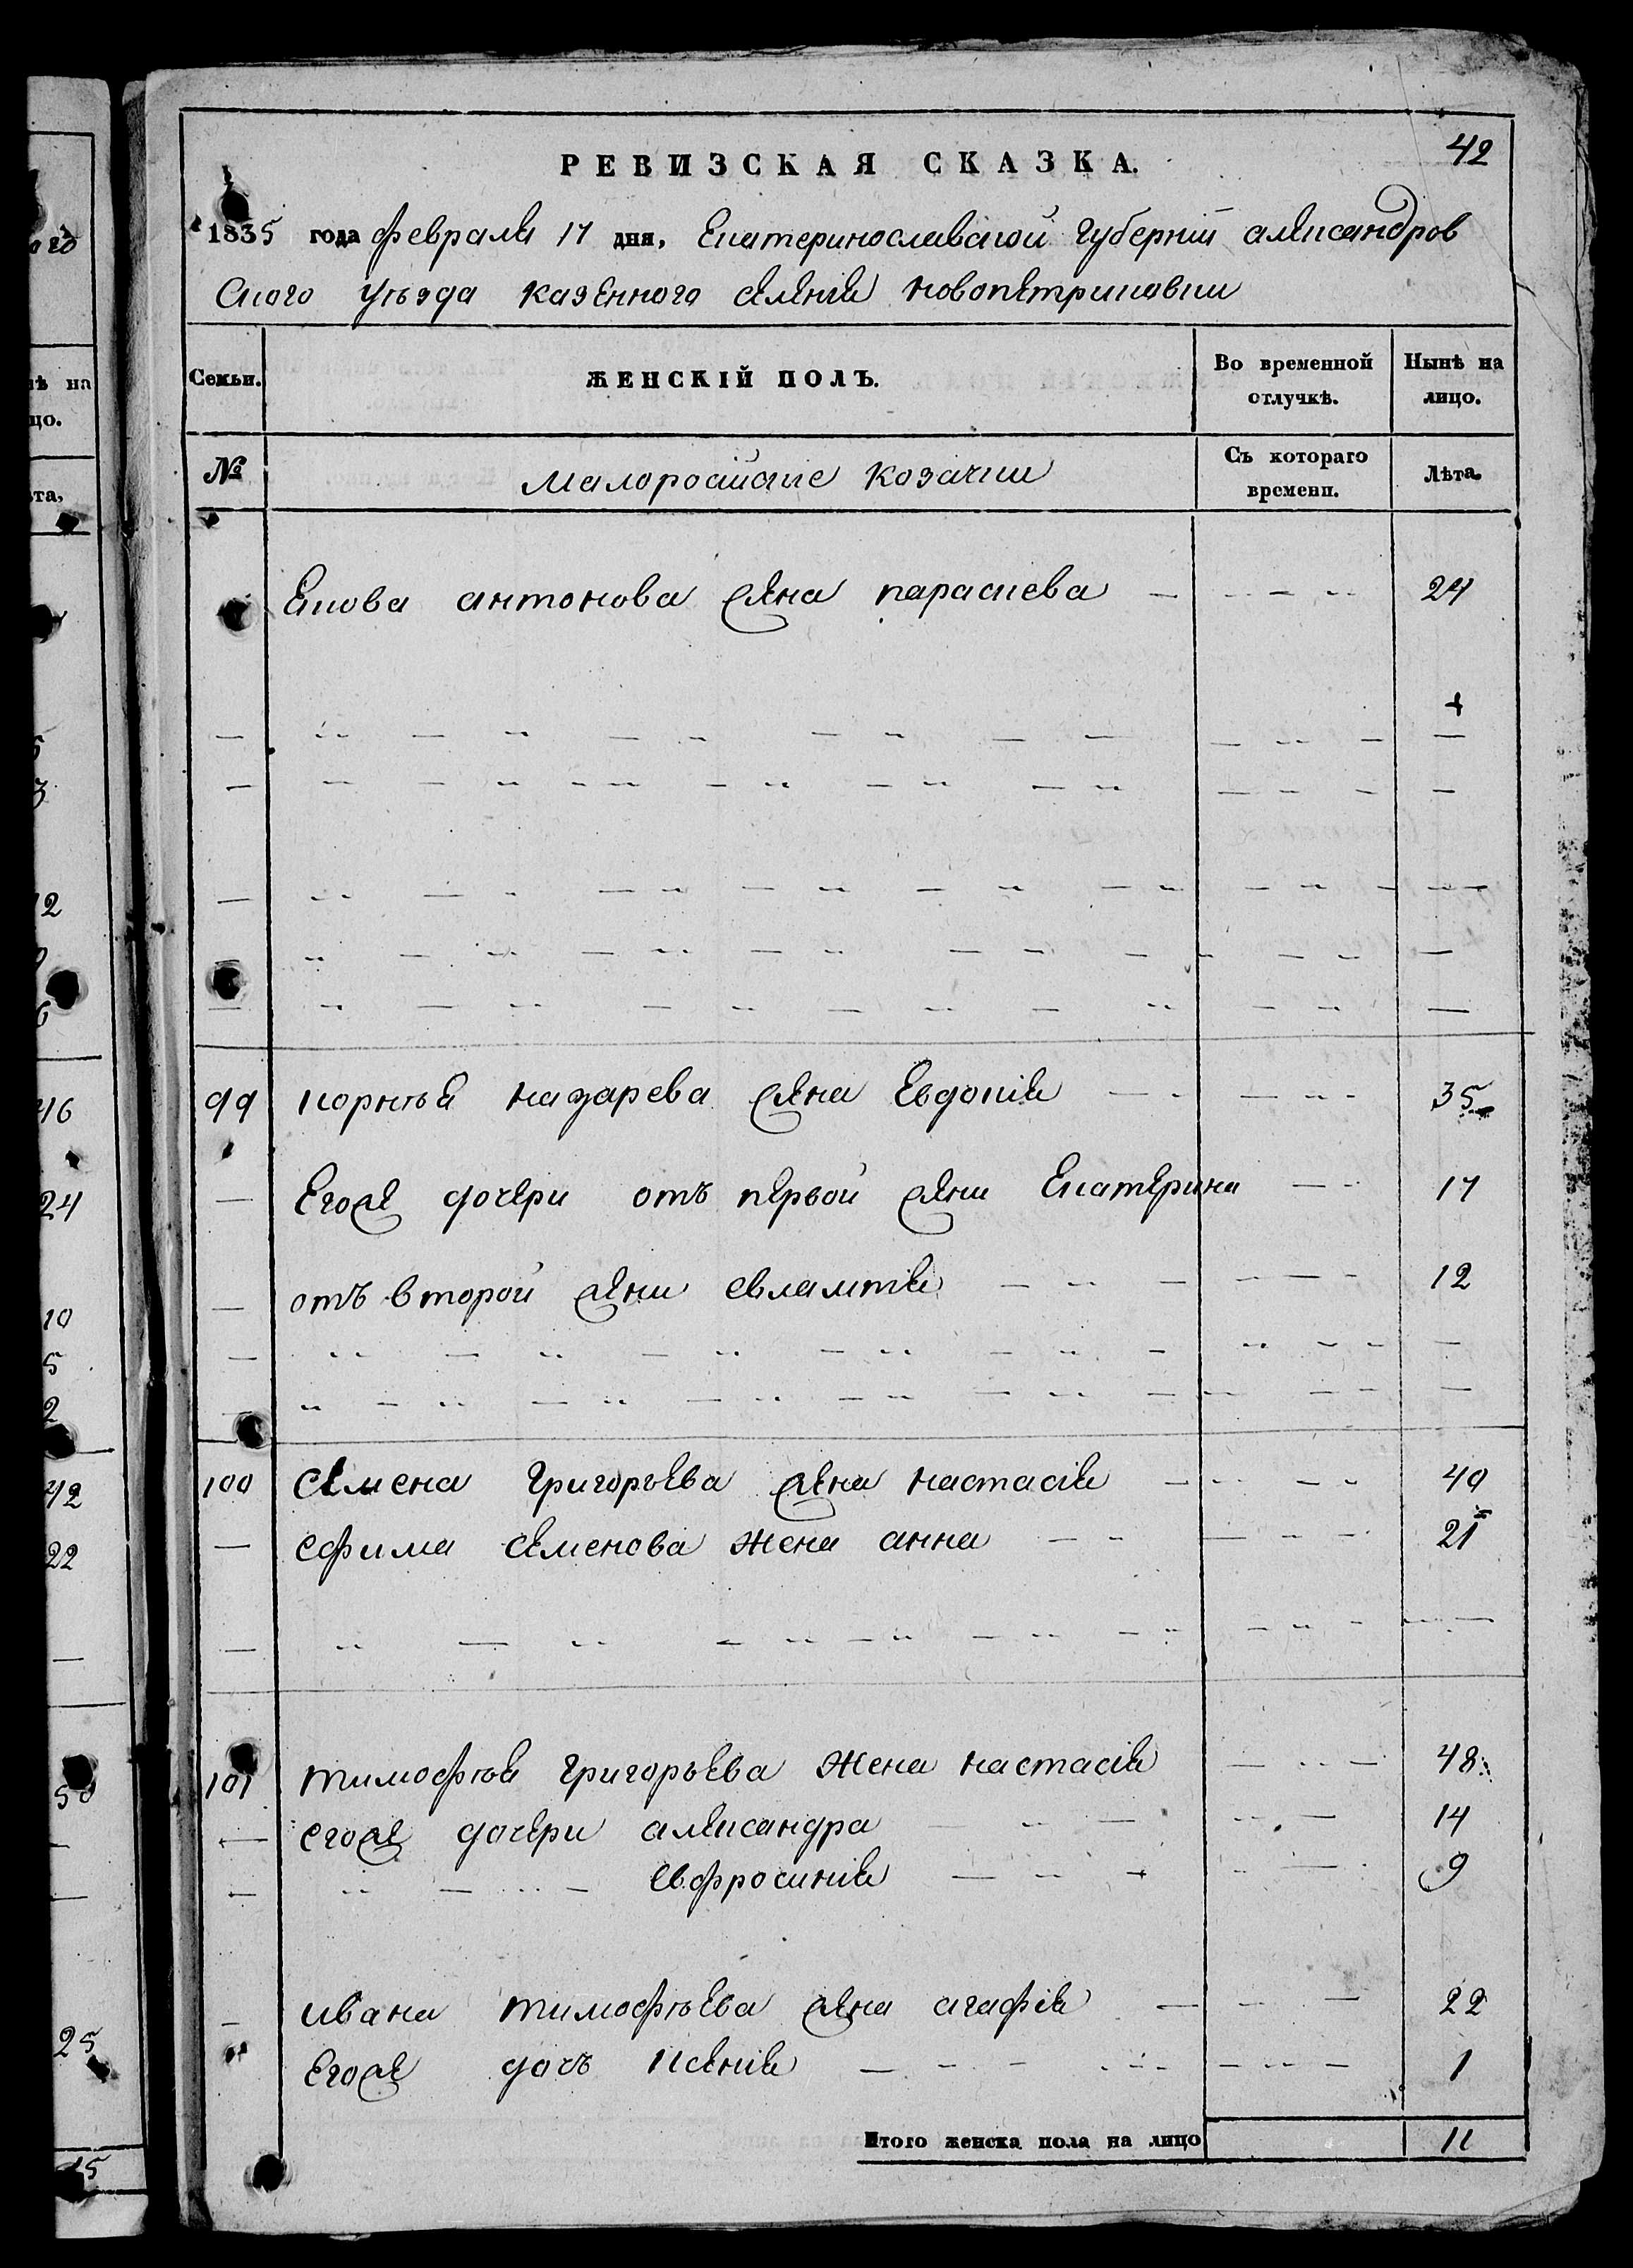 42
РЕВИЗСКАЯ СКАЗКА.
1835 года февраля 17 дня, Екатеринославской губерніи александров
ского уѣзда казенного селенія новопетриковки
Семьи. ЖЕНСКІЙ ПОЛЪ. Во временной отлучкѣ. Нынѣ на лицо.
№ Малоросійскіе козачки Съ котораго времени. Лѣта.
Якова антонова жена параскева 24
99 корнѣя назарева жена Евдокія 35
Егоже дочери отъ первой жени Екатерина 17
отъ второй жени евлампія 12
100 семена григорьева жена настасія 40
ефима семенова жена анна 21
101 тимофѣя григорьева жена настасія 48
егоже дочери александра 14
евфросинія 9
ивана тимофѣева жена агафія 22
Егоже дочъ ксенія 1
Итого женска пола на лицо 11